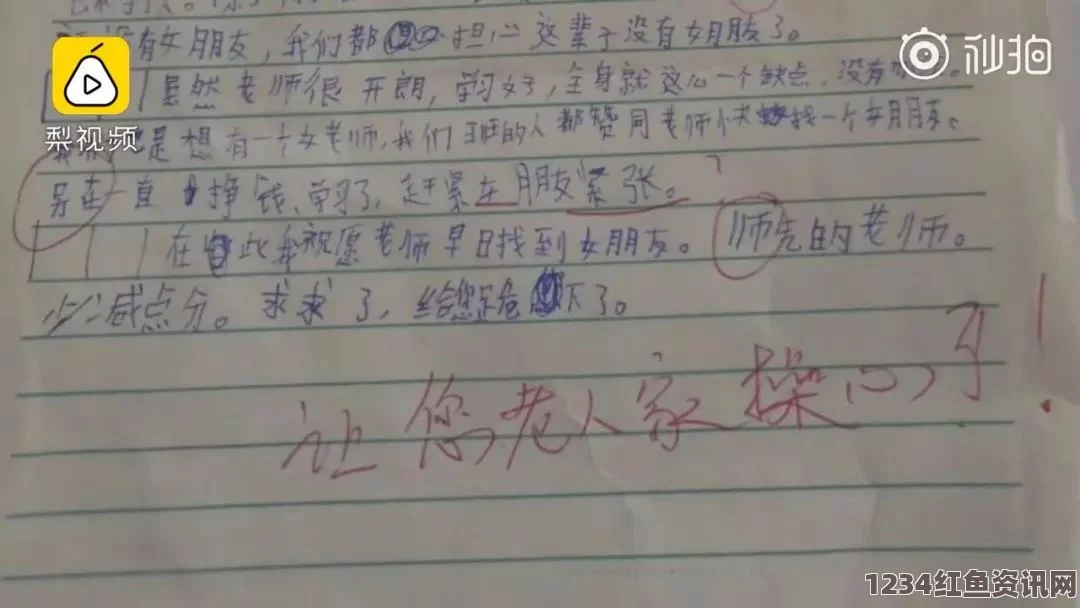 没有女朋友，我们都担心这辈子没有女朋友了。
虽然老师很开朗，学习好，全身就这么一个缺点，没有
梨视频
秒拍
是想有一个女老师，我们班的人都赞同老师快找一个女朋友。
另在一直挣钱、学习了，赶紧在朋友紧张。
在此我祝愿老师早日找到女朋友。师先的老师。
少减点分。求求了，给您跪下了。
让您老人家操心了！
1234红鱼资讯网